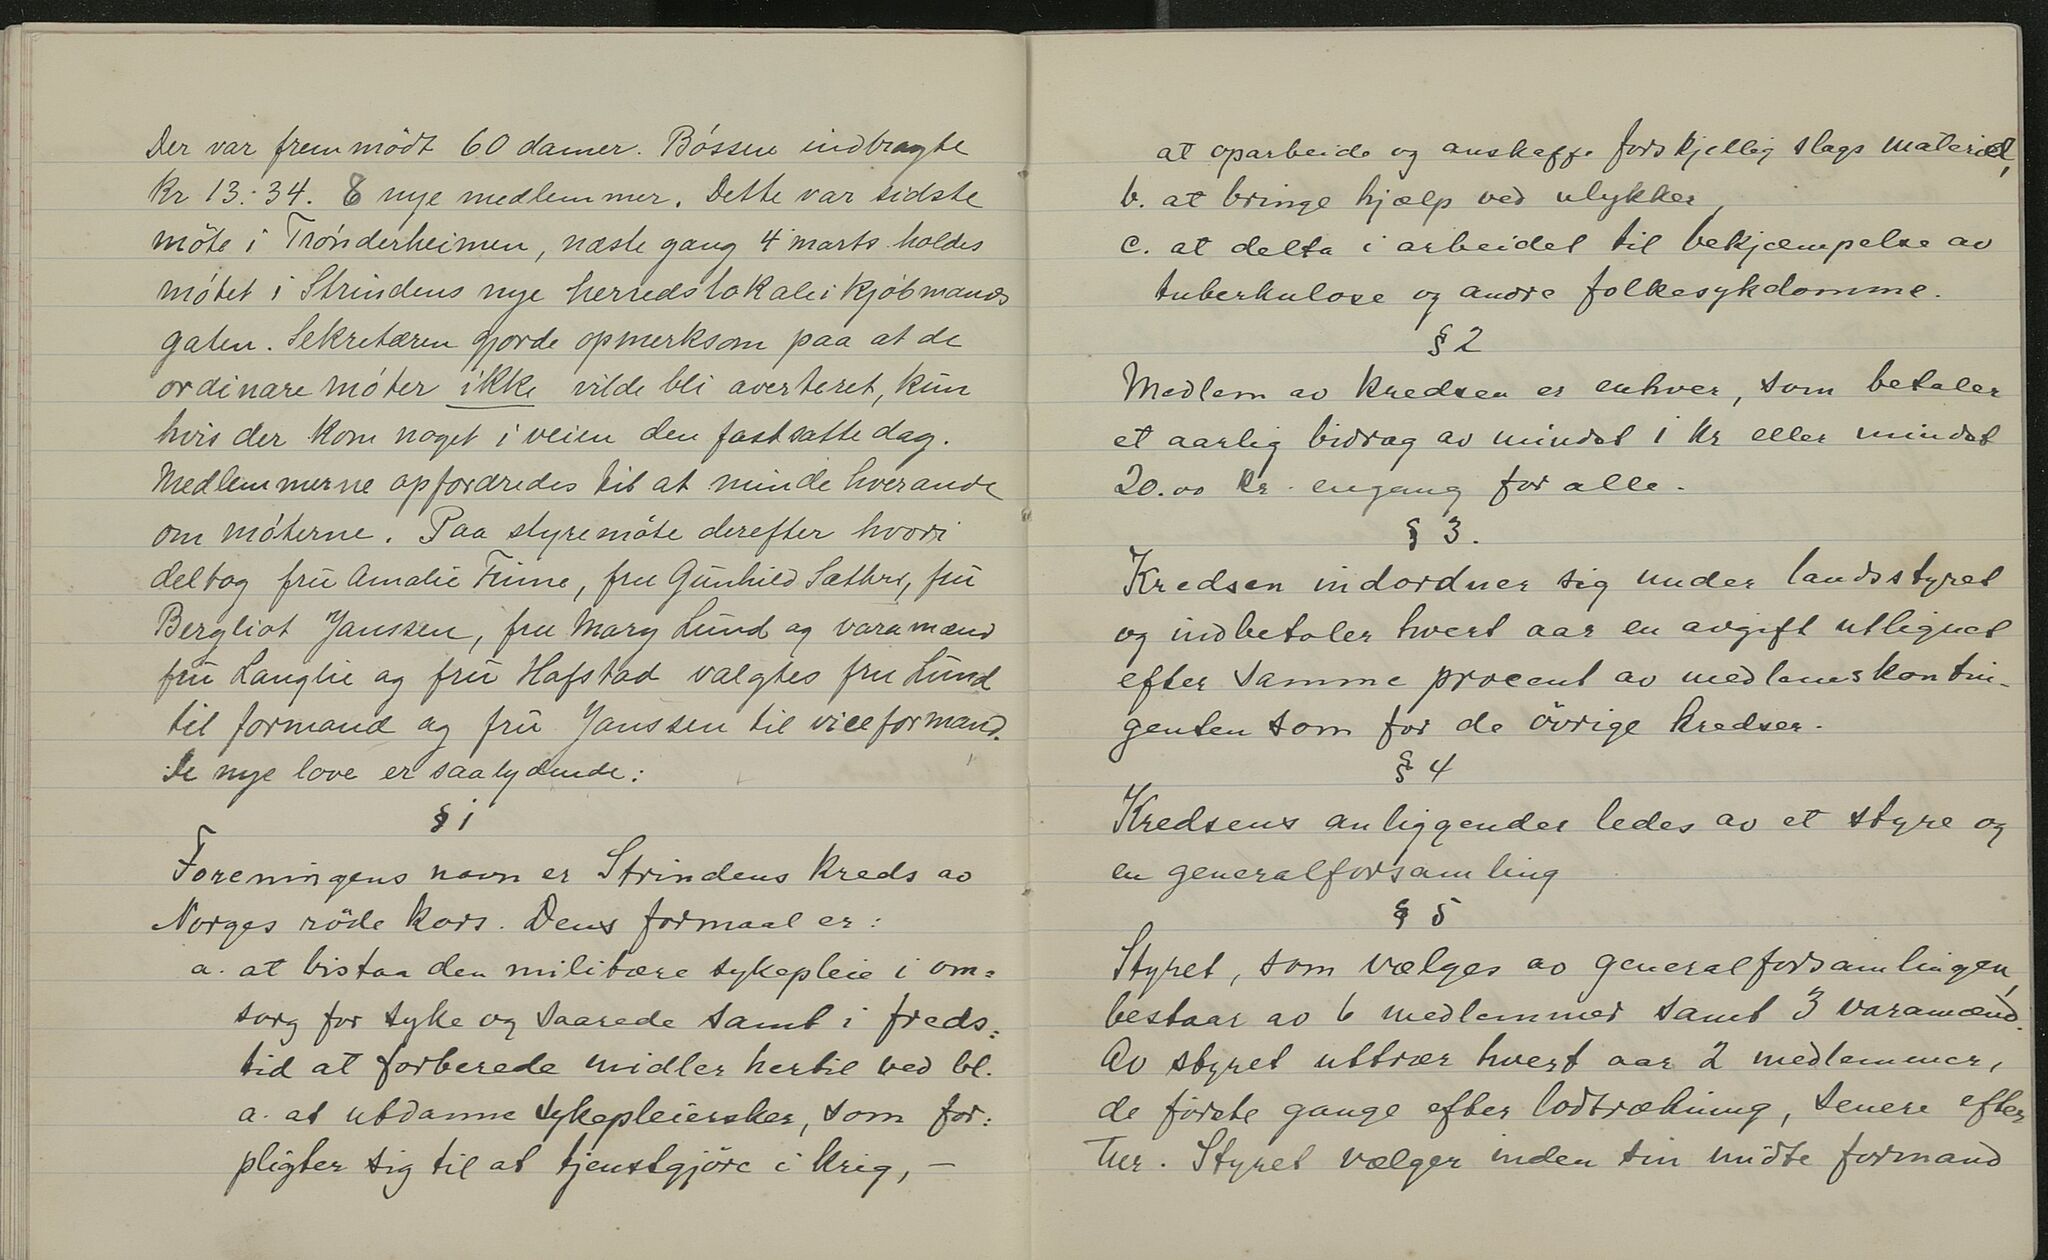 Der var fremmödt 60 damer. Bóssen indbragte
kr 13.34. 8 nye medlemmer. Dette var sidste
möte i Trónderheimen, næste gang 4 marts holdes
mótet i Strindens nye herredslokale i Kjóbmands
gaten. Sekretæren gjorde opmerksom paa at de
ordinære móter ikke vilde bli averteret, kun
hvis der kom noget i veien den fastsatte dag.
Medlemmerne opfordredes til at minde hverandre
om móterne. Paa styremöte derefter hvori
deltog frú Amalie Finne, fru Gunhild Sæther, frú
Bergliot Janssen, fru Mary Lund og varamænd
frú Langlie og frú Hafstad valgtes fru Lund
til formand og frú Janssen til viceformand.
De nye love er saalydende:
§ 1
Foreningens navn er Strindens kreds av
Norges röde kors. Dens formaal er:
a. at bistaa den militære sykepleie i om=
sorg for syke og saarede samt i freds=
tid at forberede midler hertil ved bl.
a. at utdanne sykepleiersker, som for=
pligter sig til at tjenstgjöre i krig, —
at oparbeide og anskaffe forskjellig slags materiel,
b. at bringe hjælp ved ulykker,
c. at delta i arbeidet til bekjæmpelse av
tuberkulose og andre folkesykdomme.
§ 2
Medlem av kredsen er enhver, som betaler
et aarlig bidrag av mindst 1 kr eller mindst
20.00 kr. engang for alle.
§ 3.
Kredsen indordner sig under landsstyret
og indbetaler hvert aar en avgift utlignet
efter samme procent av medlemskontin-
genten som for de övrige kredser.
§ 4
Kredsens anliggender ledes av et styre og
en generalforsamling
§ 5
Styret, som vælges av generalforsamlingen,
bestaar av 6 medlemmer samt 3 varamænd.
Av styret uttrær hvert aar 2 medlemmer,
de förste gange efter lodtrækning, senere efter
tur. Styret vælger inden sin midte formand